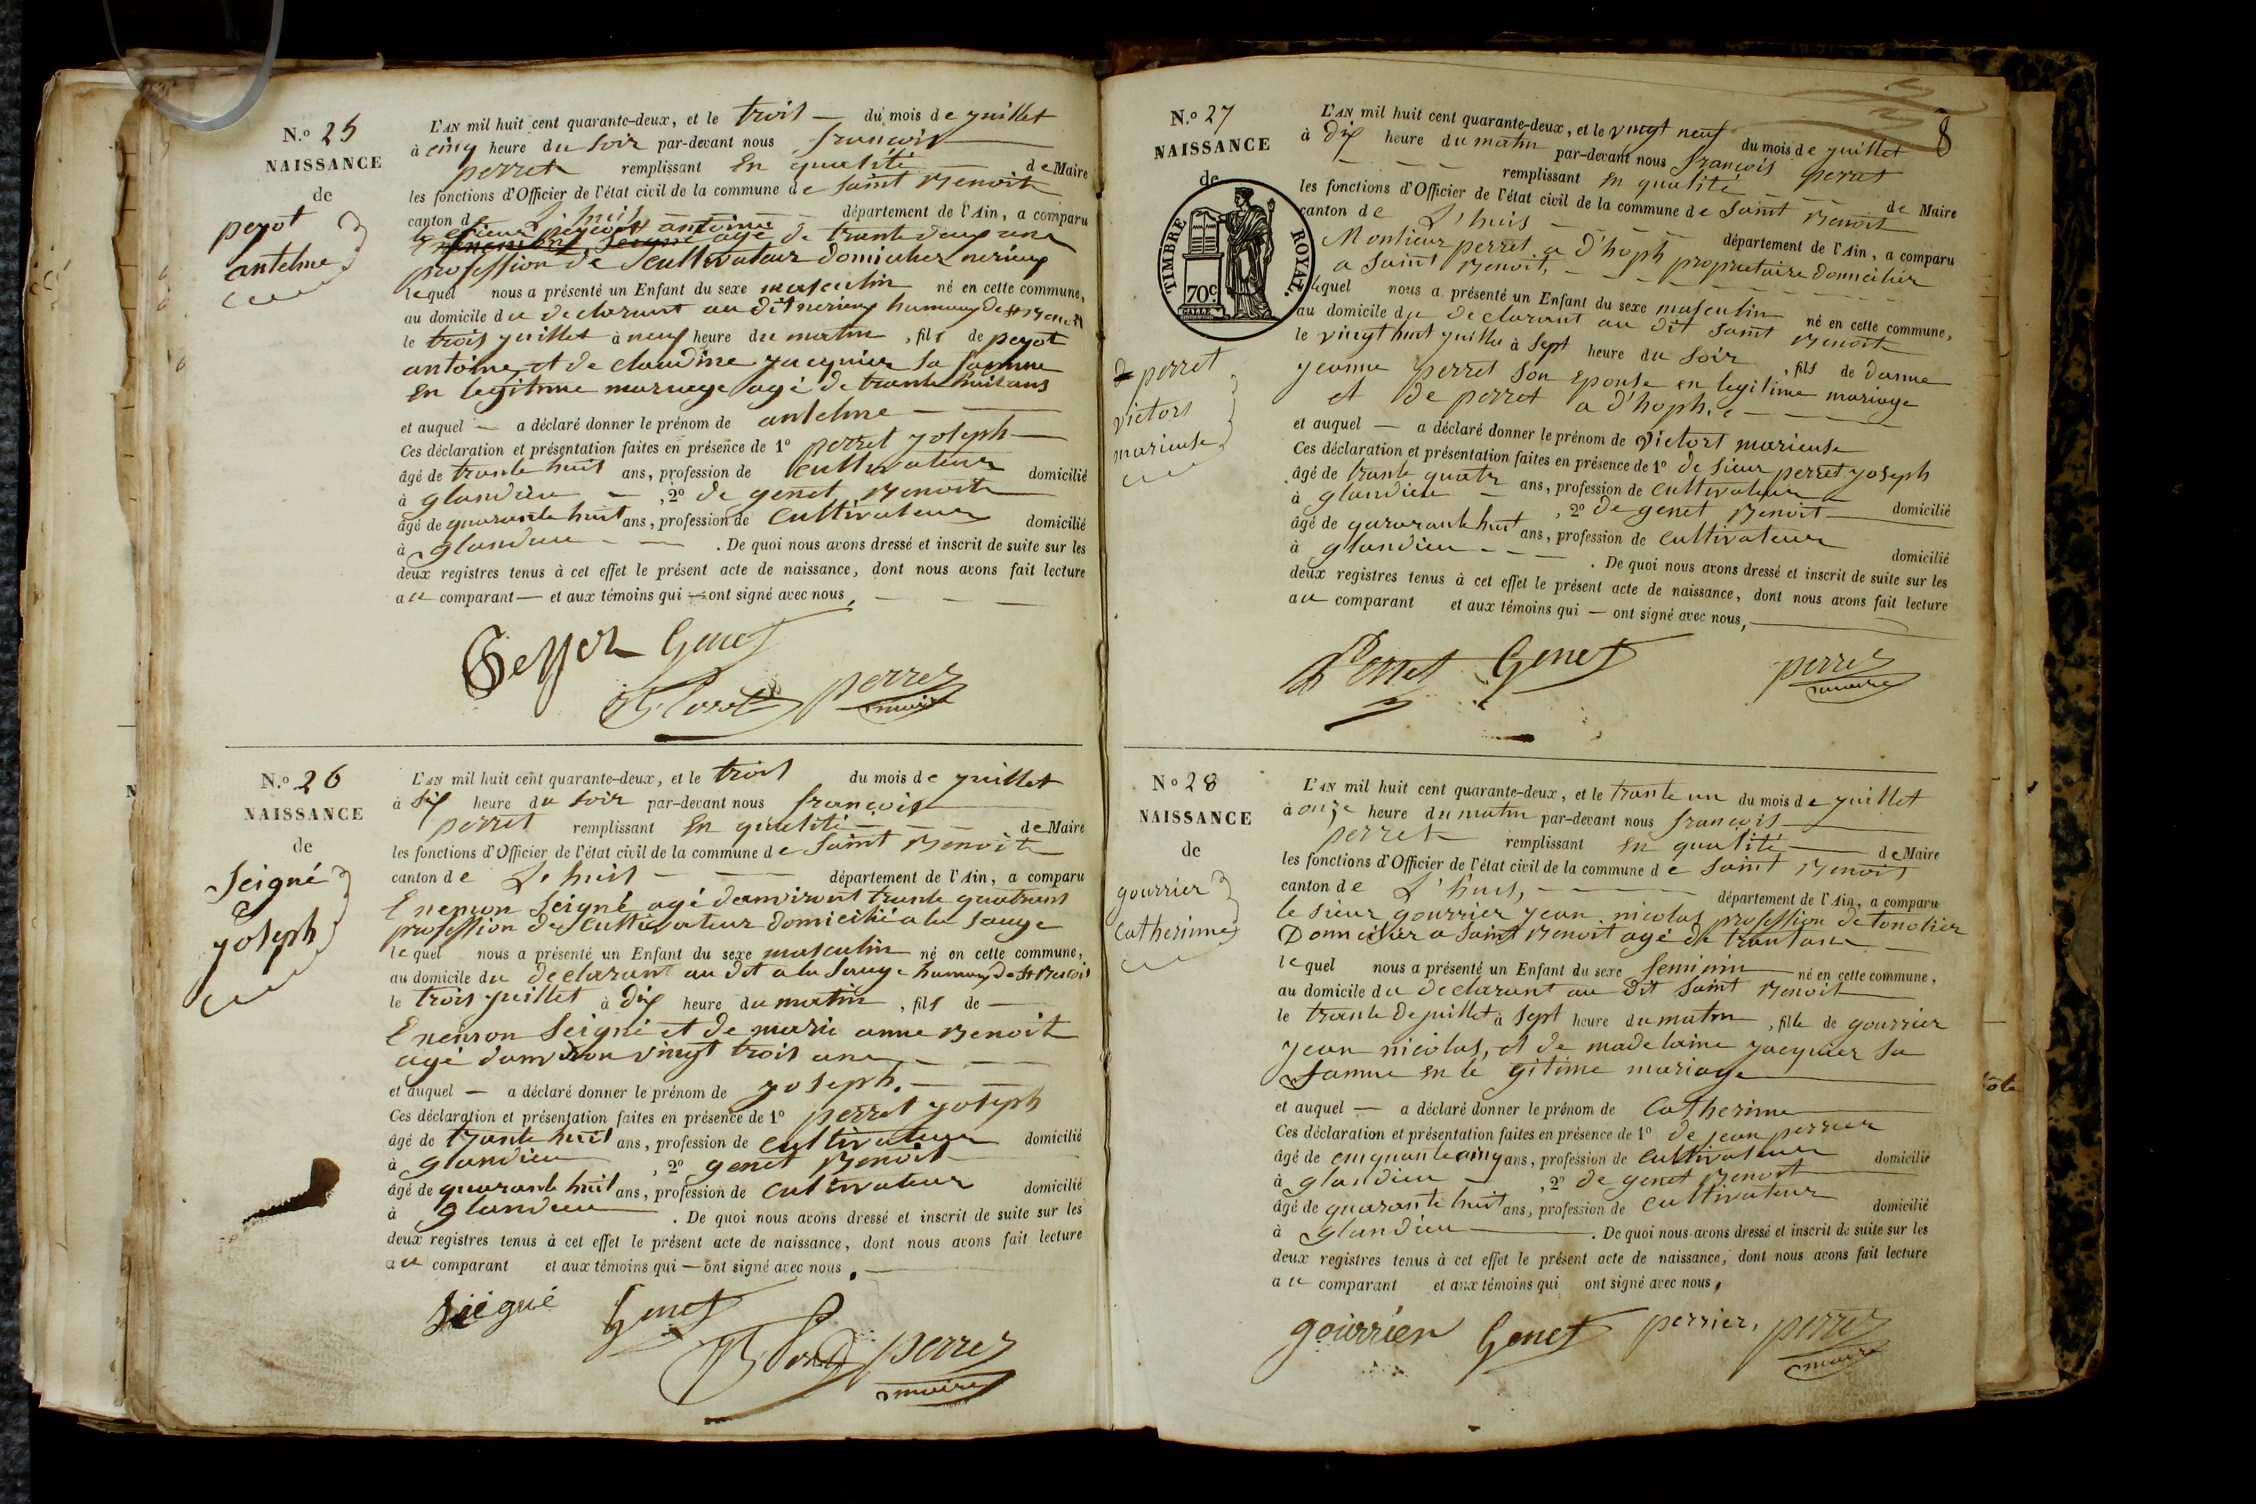 N.o 25
NAISSANCE
de
peyot
antelme
L'AN mil huit cent quarante-deux, et le trois du mois de juillet
à cinq heure du soir par-devant nous françois
perret remplissant En qualité de Maire
les fonctions d'Officier de l'état civil de la commune de saint Benoit
canton de L'huis département de l'Ain, a comparu
le sieur peyot antoine agé de trante deux ans
profession de Scultivateur domicilier nerieux
lequel nous a présenté un Enfant du sexe masculin né en cette commune,
au domicile du declarant au dit nerieux hameau de st Benoit
le trois juillet à neuf heure du matin, fils de peyot
antoine et de claudine jacquier Sa famme
En legitime mariage agé de trante huit ans
et auquel — a déclaré donner le prénom de antelme —
Ces déclaration et présentation faites en présence de 1o perret joseph
âgé de trante huit ans, profession de cultivateur domicilié
à glandieu —, 2o de genet Benoit
âgé de quarante huit ans, profession de cultivateur domicilié
à glandieu — . De quoi nous avons dressé et inscrit de suite sur les
deux registres tenus à cet effet le présent acte de naissance, dont nous avons fait lecture
au comparant — et aux témoins qui — ont signé avec nous,
Genet
perret
maire
N.o 26
NAISSANCE
de
Seigné
joseph
L'AN mil huit cent quarante-deux, et le trois du mois de juillet
à six heure du soir par-devant nous françois
perret remplissant En qualité de Maire
les fonctions d'Officier de l'état civil de la commune de saint Benoit
canton de L'huis département de l'Ain, a comparu
Enemon Seigné agé damviront trante quatrans
profession de Scultivateur domicilié a la Sauge
lequel nous a présenté un Enfant du sexe masculin né en cette commune,
au domicile du declarant au dit a la Sauge hameau de st Benoit
le trois juillet à dix heure du matin, fils de —
Enemon Seigné et de marie anne Benoit
agé damviron vingt trois ans
et auquel — a déclaré donner le prénom de joseph. —
Ces déclaration et présentation faites en présence de 1o perret joseph
âgé de trante huit ans, profession de cultivateur domicilié
à glandieu, 2o genet Benoit
âgé de quarante huit ans, profession de cultivateur domicilié
à glandieu . De quoi nous avons dressé et inscrit de suite sur les
deux registres tenus à cet effet le présent acte de naissance, dont nous avons fait lecture
au comparant et aux témoins qui — ont signé avec nous.
Siégné Genet
perret
maire
8
N.o 27
NAISSANCE
de
TIMBRE ROYAL.
70c.
perret
victort
marieuse
L'AN mil huit cent quarante-deux, et le vingt neuf du mois de juillet
à dix heure du matin par-devant nous françois perret
remplissant En qualité de Maire
les fonctions d'Officier de l'état civil de la commune de saint Benoit
canton de L'huis département de l'Ain, a comparu
Montieur perret a d'hoph proprietaire domicilier
a Saint Benoit,
lequel nous a présenté un Enfant du sexe masculin né en cette commune,
au domicile du declarant au dit saint Benoit
le vingt huit juillet à sept heure du soir, fils de danne
jeanne perret son Epouse en legitime mariage
et de perret a d'hoph.e
et auquel — a déclaré donner le prénom de victort marieuse
Ces déclaration et présentation faites en présence de 1o de sieur perret joseph
âgé de trante quatr ans, profession de cultivateur domicilié
à glandieu —, 2o de genet Benoit
âgé de quarante huit ans, profession de cultivateur domicilié
à glandieu — . De quoi nous avons dressé et inscrit de suite sur les
deux registres tenus à cet effet le présent acte de naissance, dont nous avons fait lecture
au comparant et aux témoins qui — ont signé avec nous,
Perret Genet perret
maire
N.o 28
NAISSANCE
de
gourrier
Catherinne
L'AN mil huit cent quarante-deux, et le trante un du mois de juillet
à onze heure du matin par-devant nous françois
perret remplissant En qualité de Maire
les fonctions d'Officier de l'état civil de la commune de saint Benoit
canton de L'huis, département de l'Ain, a comparu
le sieur gourrier jean nicolas profession de tonolier
Domicilier a saint Benoit agé de trantans
lequel nous a présenté un Enfant du sexe feminin né en cette commune,
au domicile du declarant au dit saint Benoit
le trante de juillet à sept heure du matin, fille de gourrier
jean nicolas, et de madelaine jacquier sa
famme en le gitime mariage
et auquel — a déclaré donner le prénom de Catherinne
Ces déclaration et présentation faites en présence de 1o de jean perrier
âgé de cinquante cinq ans, profession de cultivateur domicilié
à glandieu —, 2o de genet Benoit
âgé de quarante huit ans, profession de cultivateur domicilié
à glandieu . De quoi nous avons dressé et inscrit de suite sur les
deux registres tenus à cet effet le présent acte de naissance, dont nous avons fait lecture
au comparant et aux témoins qui ont signé avec nous,
gourrier Genet perrier, perret
maire